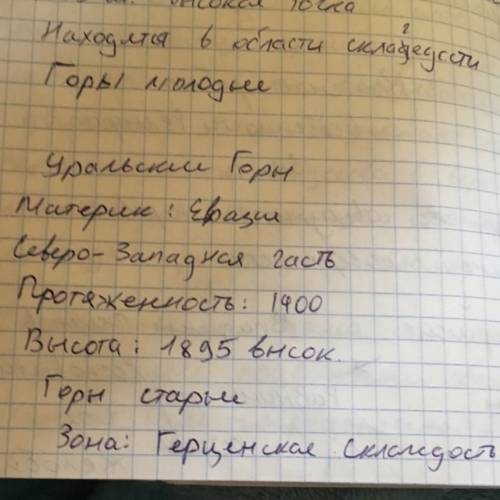 высокая точка
Находится в области складедусти
Горы молодые
Уральские Горы
Материк: Евразия
Северо-Западная часть
Протяженность: 1400
Высота: 1895 высок.
Горы старые
Зона: Герценская Складость